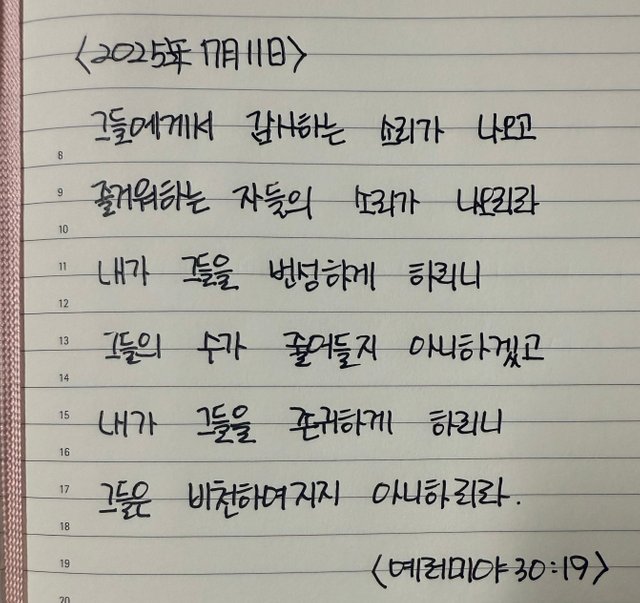 <2025年 7月 11日>
그들에게서 감사하는 소리가 나오고
8
즐거워하는 자들의 소리가 나오리라
9
10
내가 그들을 번성하게 하리니
11
12
그들의 수가 줄어들지 아니하겠고
13
14
내가 그들을 존귀하게 하리니
15
16
그들은 비천하여지지 아니하리라.
17
18
<예레미야 30:19>
19
20